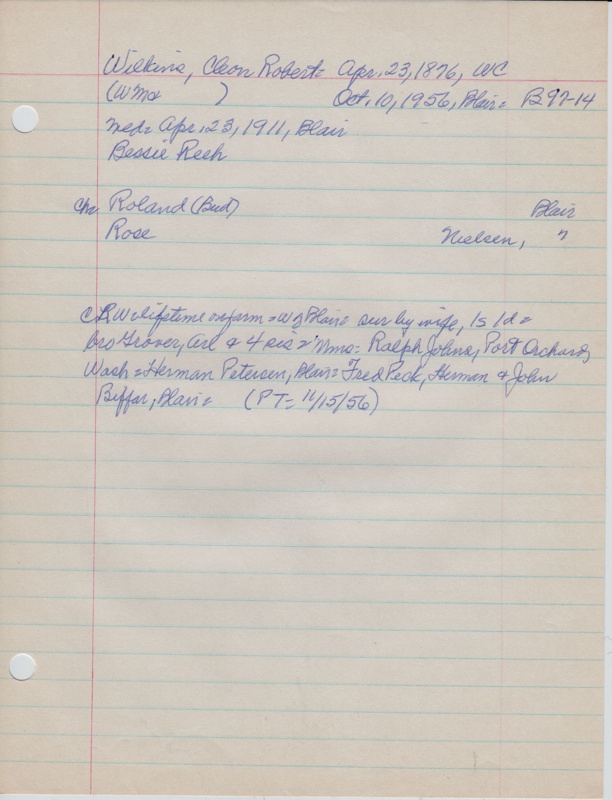 Wilkins, Cleon Robert= Apr. 23, 1876, WC
(Wm &      )      Oct. 10, 1956, Blair= B97-14
med= Apr. 23, 1911, Blair
Bessie Reeh
Ch= Roland (Bud)      Blair
Rose      Nielsen,  "
CRW=lifetime on farm = W of Blair= sur by wife, 1s 1d=
bro Grover, & 4 sis= Mmes= Ralph Johns, Port Orchard,
Wash = Herman Petersen, Blair= Fred Peck, Herman & John
Biffar, Blair=      (PT= 11/15/56)